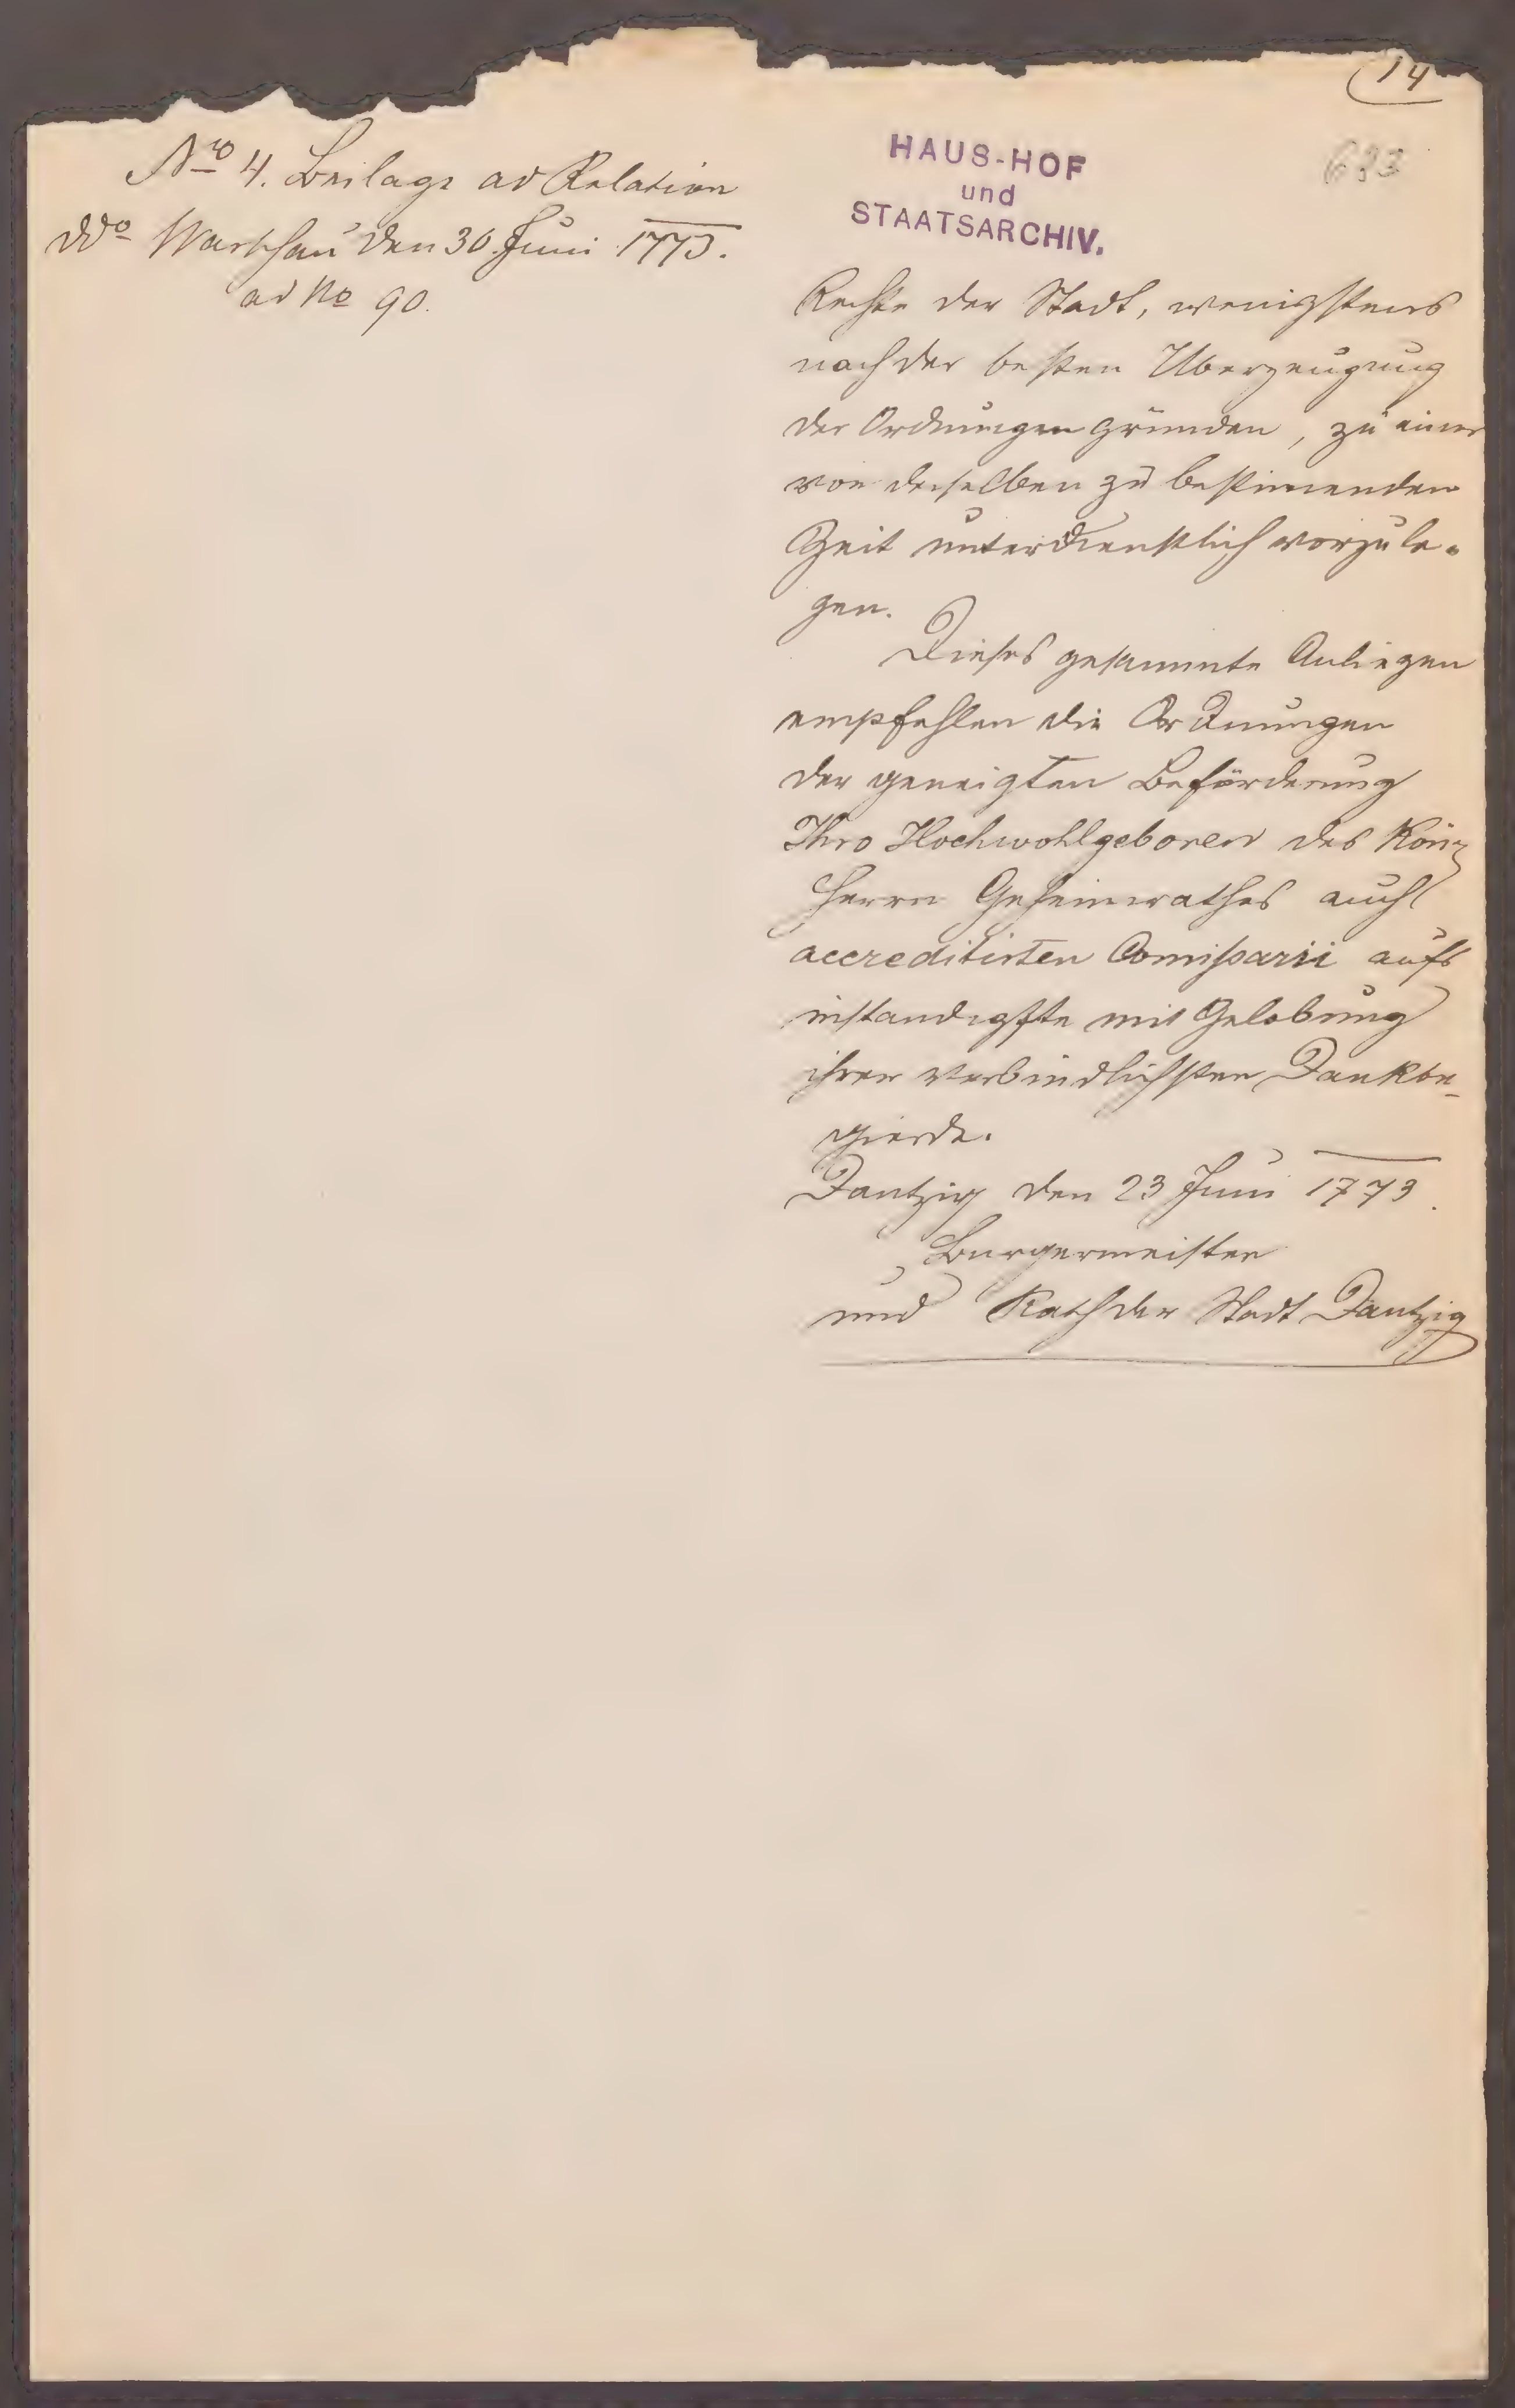 14
683
No 4. Beilage ad Relation
ddo Warschau den 30 Juni 1773.
ad No 90.
HAUS-HOF
und
STAATSARCHIV.
Rechte der Stadt, wenigstens
nach der besten Uberzeugung
der Ordnungen gründen, zu einer
von derselben zu bestimenden
Zeit unterdienstlich vorzule-
gen.
Dieses gesammte Anliegen
empfehlen die Ordnungen
der geneigten Beförderung
Ihro Hochwohlgeboren des Kön.
Herrn Geheimrathes auch
accreditirten Comissarii aufs
instandigste mit Gelobung
ihrer verbindlichsten Dankbe-
gierde.
Dantzig den 23 Juni 1773.
Burgermeister
und Rath der Stadt Dantzig